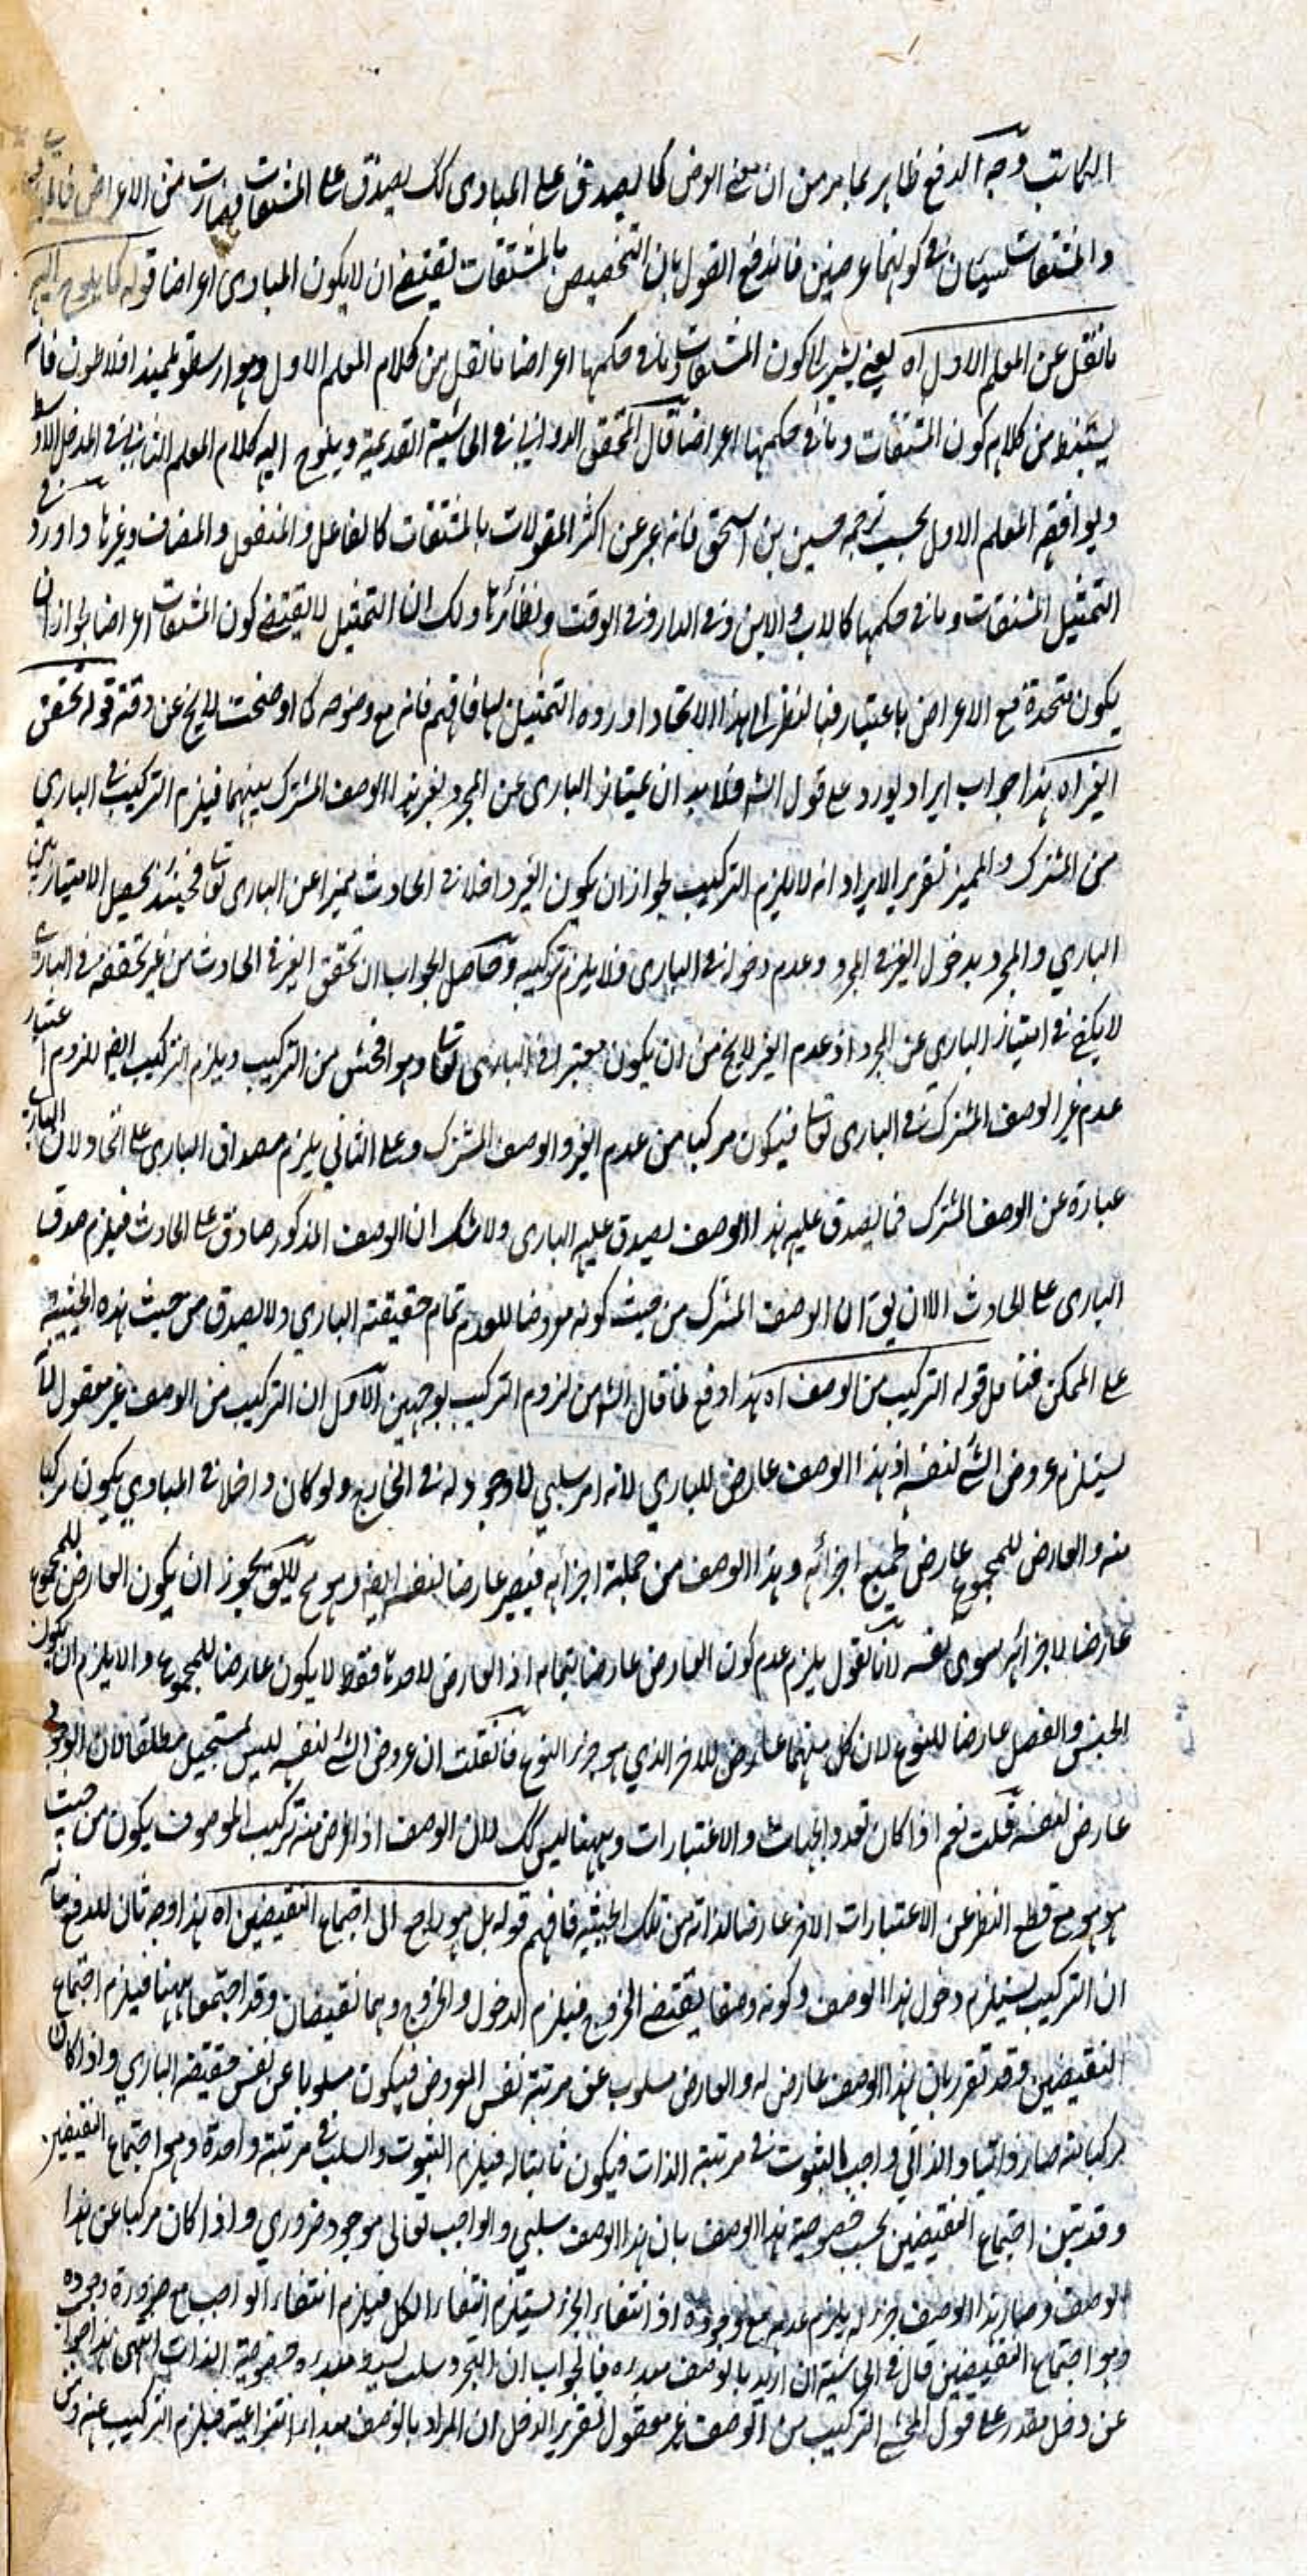 الكاتب وجه الدفع ظاهر بما مر من ان معنى العرض كما يصدق على المبادى كك يصدق على المشتقات فصارت من الاعراض
والمشتقات سيان فى كونهما عرضين فاندفع القول بان التخصيص بالمشتقات يقتضى ان لا يكون المبادى اعراضا قوله كما يلوح اليه
ما نقل عن المعلم الاول اه يعنى يشير الى كون المشتقات وما فى حكمها اعراضا ما نقل من كلام المعلم الاول وهو ارسطو تلميذ افلاطون فانه
يستنبط من كلامه كون المشتقات وما فى حكمها اعراضا قال المحقق الدوانى فى الحاشية القديمة ويلوح اليه كلام المعلم الثانى فى المدخل الاوسط
ويوافقه المعلم الاول بحسب ترجمه حسين بن اسحق فانه عبر عن اكثر المقولات بالمشتقات كالفاعل والمنفعل والمضاف وغيرها واورد فى
التمثيل المشتقات وما فى حكمها كالاب والابن وفى الدار وفى الوقت ونظائرها ولك ان التمثيل لا يقتضى كون المشتقات اعراضا لجواز ان
يكون متحدة مع الاعراض باعتبار فبالنظر الى هذا الاتحاد اورده التمثيل بها فافهم فانه مع وضوحه كما اوضحت لا يخ عن دقة قوله تحقق
الغير اه هذا جواب ايراد يورد على قول الشه فلا بد ان يمتاز البارى عن المجرد بغير هذا الوصف المشترك بينهما فيلزم التركيب فى البارى
من المشترك والمميز تقرير الايراد انه لا يلزم التركيب لجواز ان يكون الغير داخلا فى الحادث مميزا عن البارى تعا فحينئذ يحصل الامتياز بين
البارى والمجرد بدخول الغير فى المجرد وعدم دخوله فى البارى فلا يلزم تركيبه وحاصل الجواب ان تحقق الغير فى الحادث من غير تحققه فى البارى
لا يكفى فى امتياز البارى عن المجرد اذ عدم الغير لا يخ من ان يكون معتبرا فى البارى تعا وهو افحش من التركيب ويلزم التركيب ايض للزوم اعتبار
عدم غير الوصف المشترك فى البارى تعا فيكون مركبا من عدم الغير والوصف المشترك وعلى الثانى يلزم مصداق البارى على الحاد لان البارى
عبارة عن الوصف المشترك فما يصدق عليه هذا الوصف يصدق عليه البارى ولا شك ان الوصف المذكور صادق على الحادث فيلزم صدق
البارى على الحادث اللا ان يق ان الوصف المشترك من حيث كونه معروضا للعدم تمام حقيقة البارى ولا يصدق من حيث هذه الحيثية
على الممكن فتامل قوله التركيب من الوصف اه هذا دفع لما قال الشه من لزوم التركيب بوجهين الاول ان التركيب من الوصف غير معقول لانه
يستلزم عروض الشئ لنفسه اذ هذا الوصف عارض للبارى لانه امر سلبى لا وجود له فى الخارج ولو كان داخلا فى المبادى يكون مركبا
منه والعارض للمجموع عارض لجميع اجزائه وهذا الوصف من جملة اجزائه فيصير عارضا لنفسه ايض وهو مح لا يق يجوز ان يكون العارض للمجموع
عارضا لاجزائه سوى نفسه لانا نقول يلزم عدم كون العارض عارضا بتمامه اذ العارض لاحدها فقط لا يكون عارضا للمجموع والا يلزم ان يكون
الجنس والفصل عارضا للنوع لان كل منهما عارض للاخر الذى هو جزء النوع فان قلت ان عروض الشئ لنفسه ليس بمستحيل مطلقا فان الوجود
عارض لنفسه قلت نعم اذا كان تعدد الجهات والاعتبارات وههنا ليس كك لان الوصف اذا فرض منه تركيب الموصوف يكون من حيث
هو هو مع قطع النظر عن الاعتبارات الاخر عارضا لذاته من تلك الحيثية فافهم قوله بل هو راجع الى اجتماع النقيضين اه هذا وجه ثان للدفع بيانه
ان التركيب يستلزم دخول هذا الوصف وكونه وصفا يقتضى الخروج فيلزم الدخول والخروج وهما نقيضان وقد اجتمعا ههنا فيلزم اجتماع
النقيضين وقد تقرر بان هذا الوصف عارض له والعارض مسلوب عن مرتبة نفس المعروض فيكون مسلوبا عن نفس حقيقة البارى واذا كان
مركبا منه صار ذاتيا والذاتى واجب الثبوت فى مرتبة الذات فيكون ثابتا له فيلزم الثبوت والسلب فى مرتبة واحدة وهو اجتماع النقيضين
وقد تبين اجتماع النقيضين بحسب خصوصية هذا الوصف بان هذا الوصف سلبى والواجب تعالى موجود ضرورى واذا كان مركبا عن هذا
الوصف وصار هذا الوصف جزء له يلزم عدمه مع وجوده اذ انتفاء الجزء يستلزم انتفاء الكل فيلزم انتفاء الواجب مع ضرورة وجوده
وهو اجتماع النقيضين قال فى الحاشية ان اريد بالوصف مبدءه فالجواب ان التجرد سلب بسيط مبدءه خصوصية الذات انتهى هذا جواب
عن دخل مقدر على قول المحشى التركيب من الوصف غير معقول تقرير الدخل ان المراد بالوصف مبدء انتزاعيته فيلزم التركيب عنه ومن